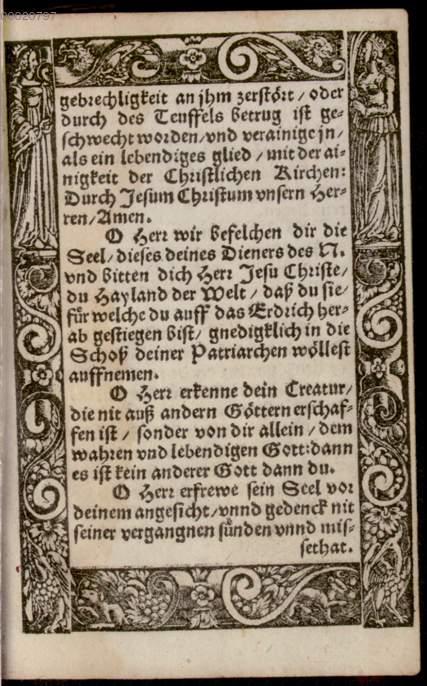 00020797
gebrechligkeit an jhm zerstört / oder
durch des Teuffels betrug ist ge-
schwecht worden/vnd verainige jn /
als ein lebendiges glied / mit der ai-
nigkeit der Christlichen Kirchen:
Durch Jesum Christum vnsern Her-
ren/Amen.
O Herr wir befelchen dir die
Seel/dieses deines Dieners des N.
vnd bitten dich Herr Jesu Christe/
du Hayland der Welt / daß du sie/
für welche du auff das Erdrich her-
ab gestiegen bist/ gnedigklich in die
Schoß deiner Patriarchen wöllest
auffnemen.
O Herr erkenne dein Creatur/
die nit auß andern Göttern erschaf-
fen ist / sonder von dir allein / dem
wahren vnd lebendigen Gott:dann
es ist kein anderer Gott dann du.
O Herr erfrewe sein Seel vor
deinem angesicht/vnnd gedenck nit
seiner vergangnen sünden vnnd mis-
sethat.